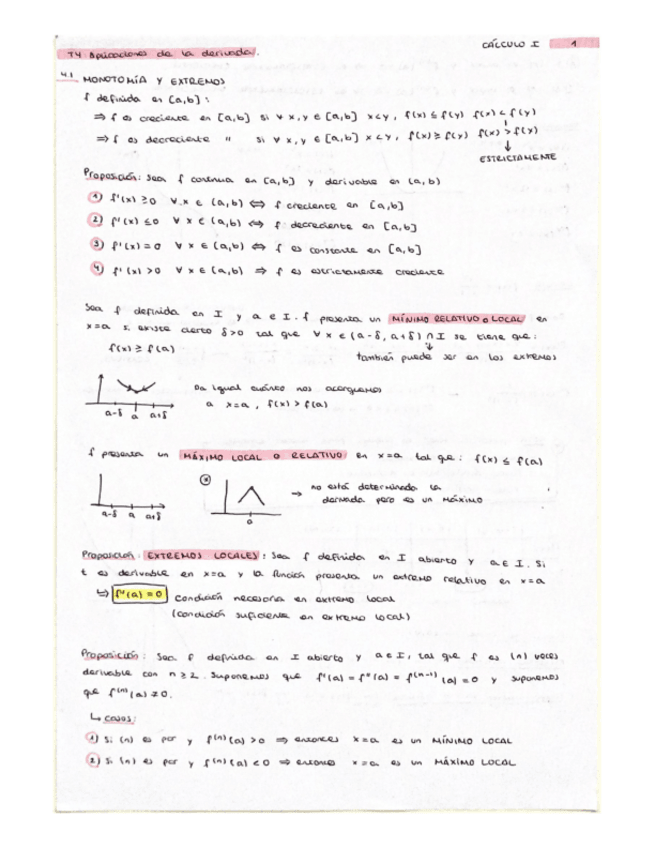 CÁLCULO I 1
T4: Aplicaciones de la derivada.
4.1 MONOTOMÍA Y EXTREMOS
f definida en [a,b]:
⇒ f es creciente en [a,b] si ∀ x,y ∈ [a,b] x<y, f(x) ≤ f(y) f(x) < f(y)
⇒ f es decreciente " si ∀ x,y ∈ [a,b] x<y, f(x) ≥ f(y) f(x) > f(y)
ESTRICTAMENTE
Proposición: Sea f continua en [a,b] y derivable en (a,b)
1) f'(x) ≥ 0 ∀ x ∈ (a,b) ⇔ f creciente en [a,b]
2) f'(x) ≤ 0 ∀ x ∈ (a,b) ⇔ f decreciente en [a,b]
3) f'(x) = 0 ∀ x ∈ (a,b) ⇔ f es constante en [a,b]
4) f'(x) > 0 ∀ x ∈ (a,b) ⇒ f es estrictamente creciente
Sea f definida en I y a ∈ I. f presenta un MÍNIMO RELATIVO o LOCAL en
x=a si existe cierto δ>0 tal que ∀ x ∈ (a-δ, a+δ) ∩ I se tiene que:
f(x) ≥ f(a) también puede ser en los extremos
Da igual cuánto nos acerquemos
a x=a, f(x) > f(a)
a-δ a a+δ
f presenta un MÁXIMO LOCAL O RELATIVO en x=a tal que: f(x) ≤ f(a)
* → no está determinada la
derivada pero es un máximo
a-δ a a+δ a
Proposición: EXTREMOS LOCALES: Sea f definida en I abierto y a ∈ I. Si
f es derivable en x=a y la función presenta un extremo relativo en x=a
↳ f'(a) = 0 Condición necesaria en extremo local
(condición suficiente en extremo local)
Proposición: Sea f definida en I abierto y a ∈ I, tal que f es (n) veces
derivable con n ≥ 2. Suponemos que f'(a) = f''(a) = f^(n-1)(a) = 0 y suponemos
que f^(n)(a) ≠ 0.
↳ casos:
1) Si (n) es par y f^(n)(a) > 0 ⇒ entonces x=a es un MÍNIMO LOCAL
2) Si (n) es par y f^(n)(a) < 0 ⇒ entonces x=a es un MÁXIMO LOCAL